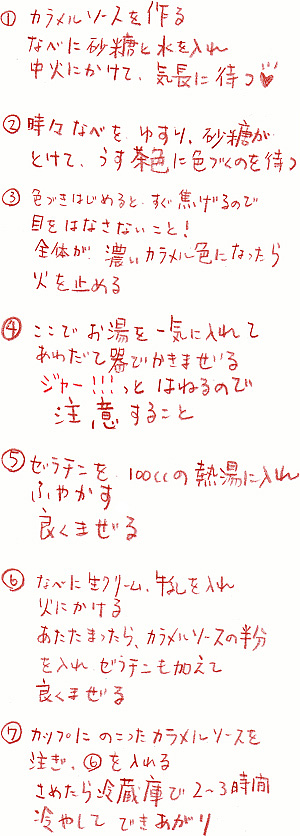 ① カラメルソースを作る
なべに砂糖と水を入れ
中火にかけて、気長に待つ♥
② 時々なべを ゆすり、砂糖が
とけて、うす茶色に色づくのを待つ
③ 色づきはじめると すぐ焦げるので
目をはなさないこと!
全体が 濃いカラメル色になったら
火を止める
④ ここで お湯を 一気に入れて
あわだて器でかきまぜる
ジャー!!!っと はねるので
注意すること
⑤ ゼラチンを 100ccの熱湯に入れ
ふやかす
良くまぜる
⑥ なべに生クリーム、牛乳を入れ
火にかける
あたたまったら、カラメルソースの半分
を入れ ゼラチンも加えて
良くまぜる
⑦ カップに のこったカラメルソースを
注ぎ、⑥を入れる
さめたら冷蔵庫で 2~3時間
冷やして できあがり